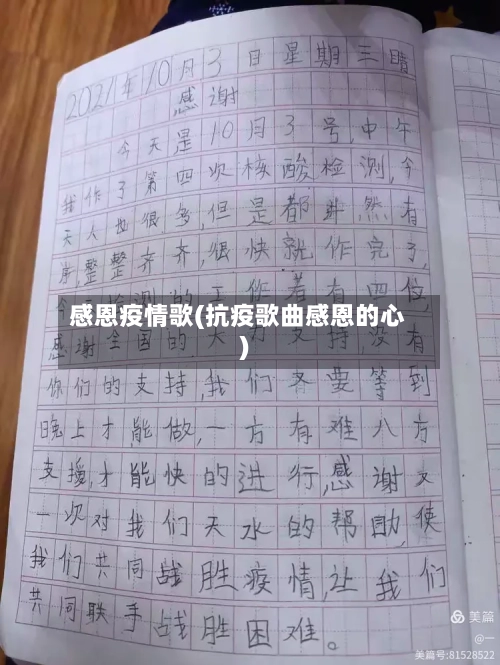 2021年10月3日星期三晴
感谢
今天是10月3号,中午
我作了第四次核酸检测,今
天人也很多,但是都井然有
序,整整齐齐,很快就作完了,
作者有四位,
感恩疫情歌(抗疫歌曲感恩的心
)
感谢全国的大力支持,没有
你们的支持,我们要等到
晚上才能做,一方有难八方
支援,才能快的进行,感谢又
一次对我们天水的帮助,使
我们共同战胜疫情,让我们
共同联手战胜困难。
美篇
@一
美篇号:81528522